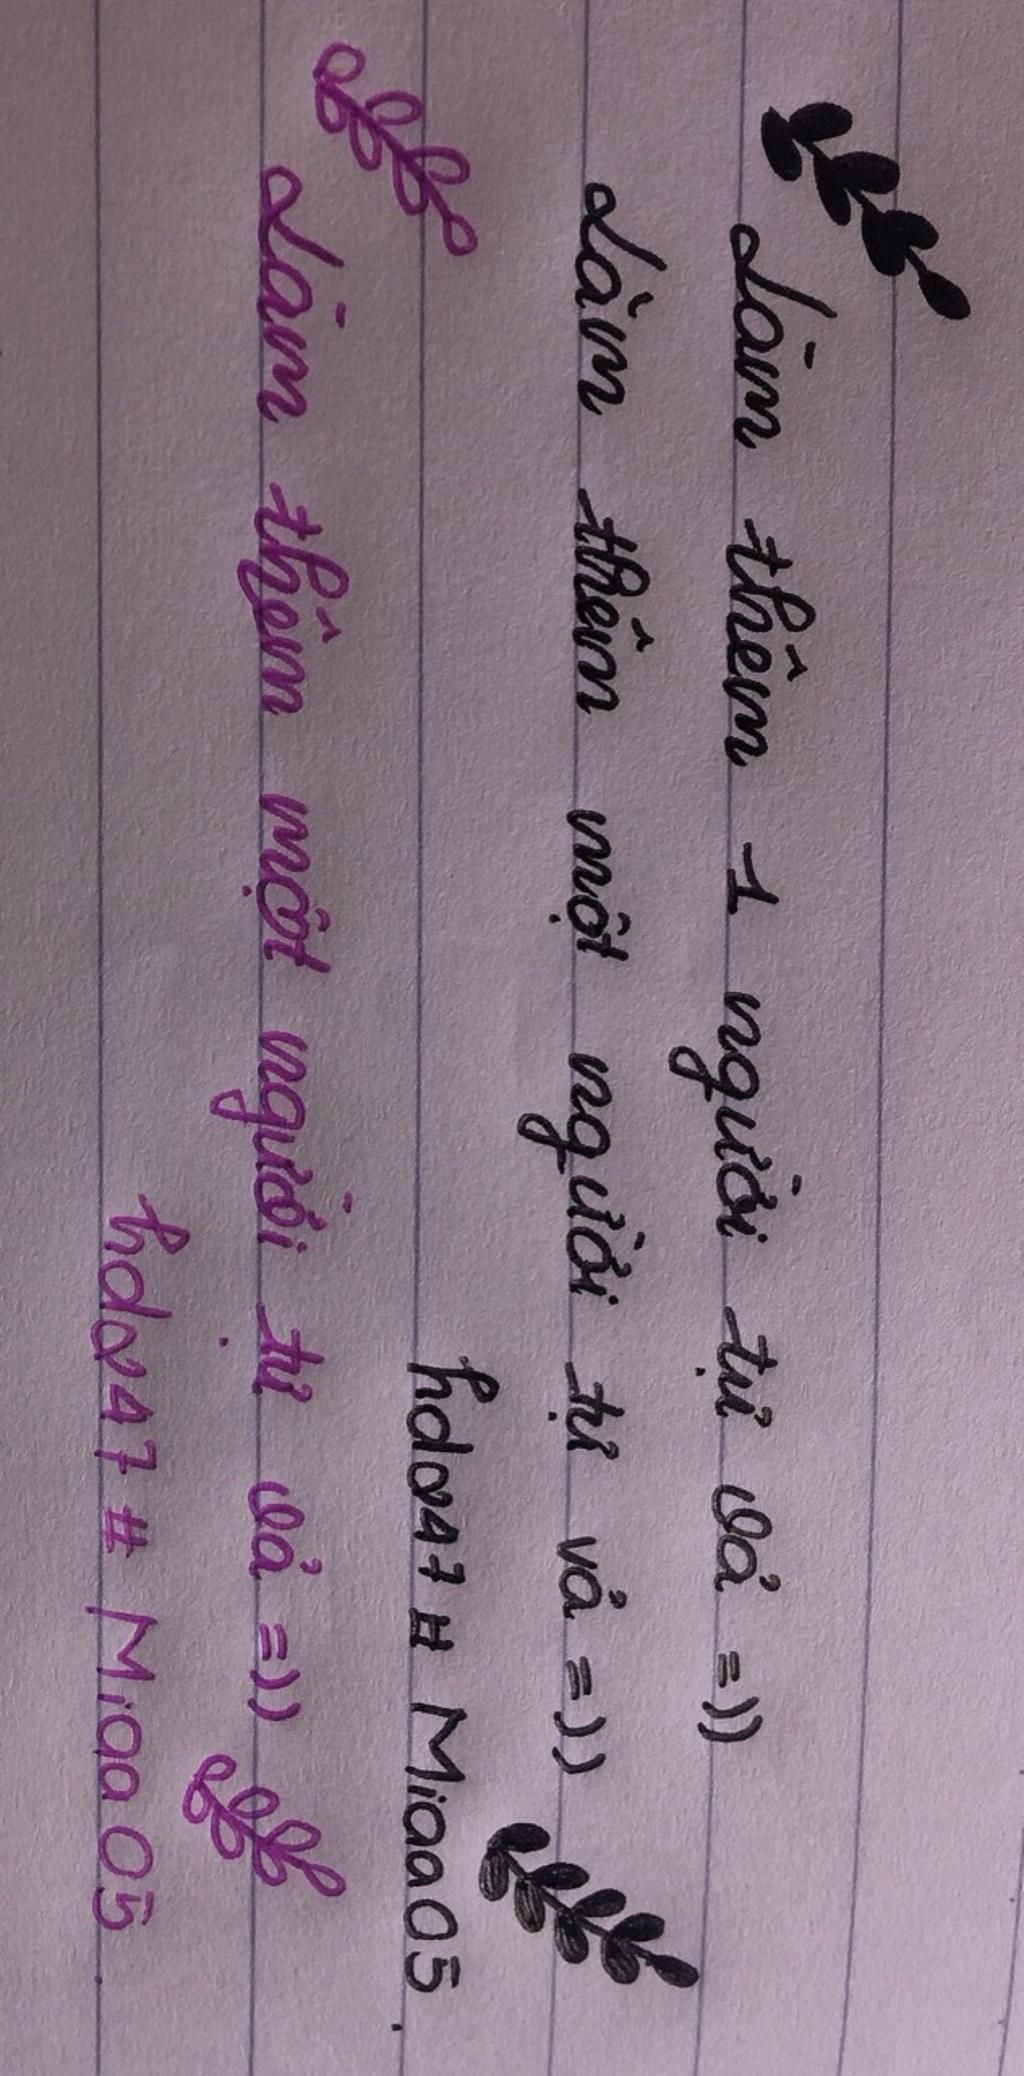 Làm thêm 1 người tự vả =))
Làm thêm một người tự vả =))
hdov47 # Miaa05.
Làm thêm một người tự vả =))
hdov47 # Miaa05.